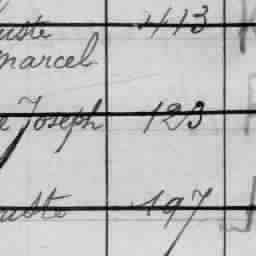 uste 413
Marcel
e Joseph 123
uste 197